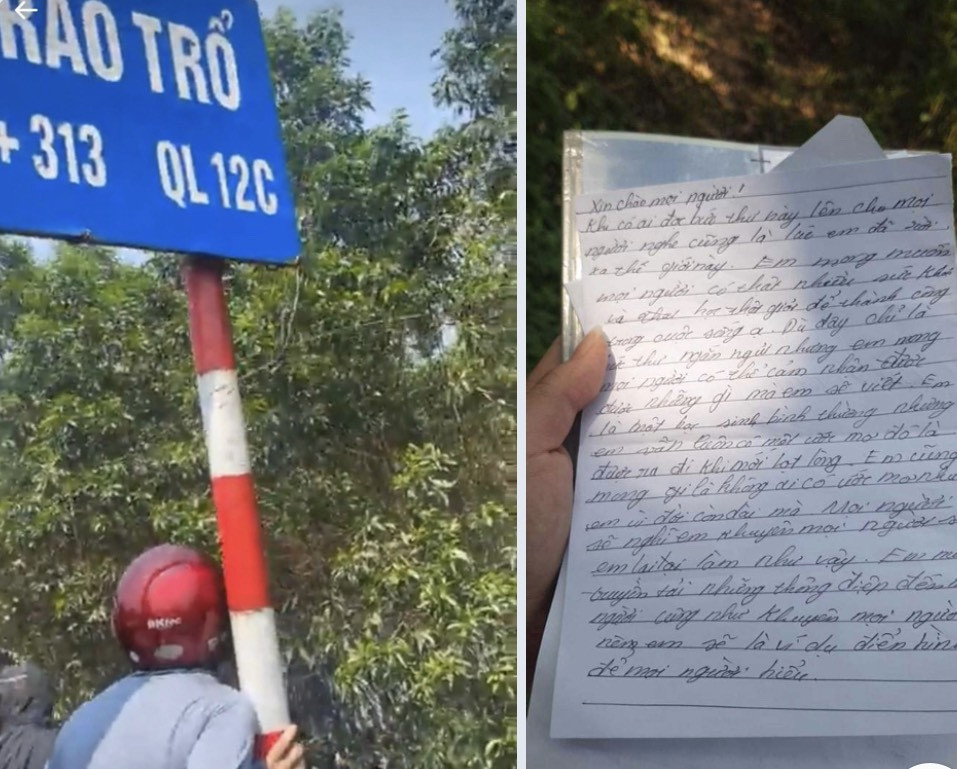 RÀO TRỔ
+ 313 QL 12C
BKtec
Xin chào mọi người!
Khi có ai đọc bức thư này lên cho mọi
người nghe cũng là lúc em đã rời
xa thế giới này. Em mong muốn
mọi người có thật nhiều sức khỏe
và học thật giỏi để thành công
trong cuộc sống ạ. Dù đây chỉ là
thư ngắn ngủi nhưng em mong
mọi người có thể cảm nhận được
được những gì mà em sẽ viết. Em
là một học sinh bình thường nhưng
em vẫn luôn có một ước mơ đó là
được ra đi khi mới lọt lòng. Em cũng
mong gì là không ai có ước mơ như
em vì đời còn dài mà. Mọi người
sẽ nghĩ em khuyên mọi người s
em lại tại làm như vậy. Em mu
truyền tải những thông điệp đến
người cũng như khuyên mọi người
nên em sẽ là ví dụ điển hình
để mọi người hiểu.